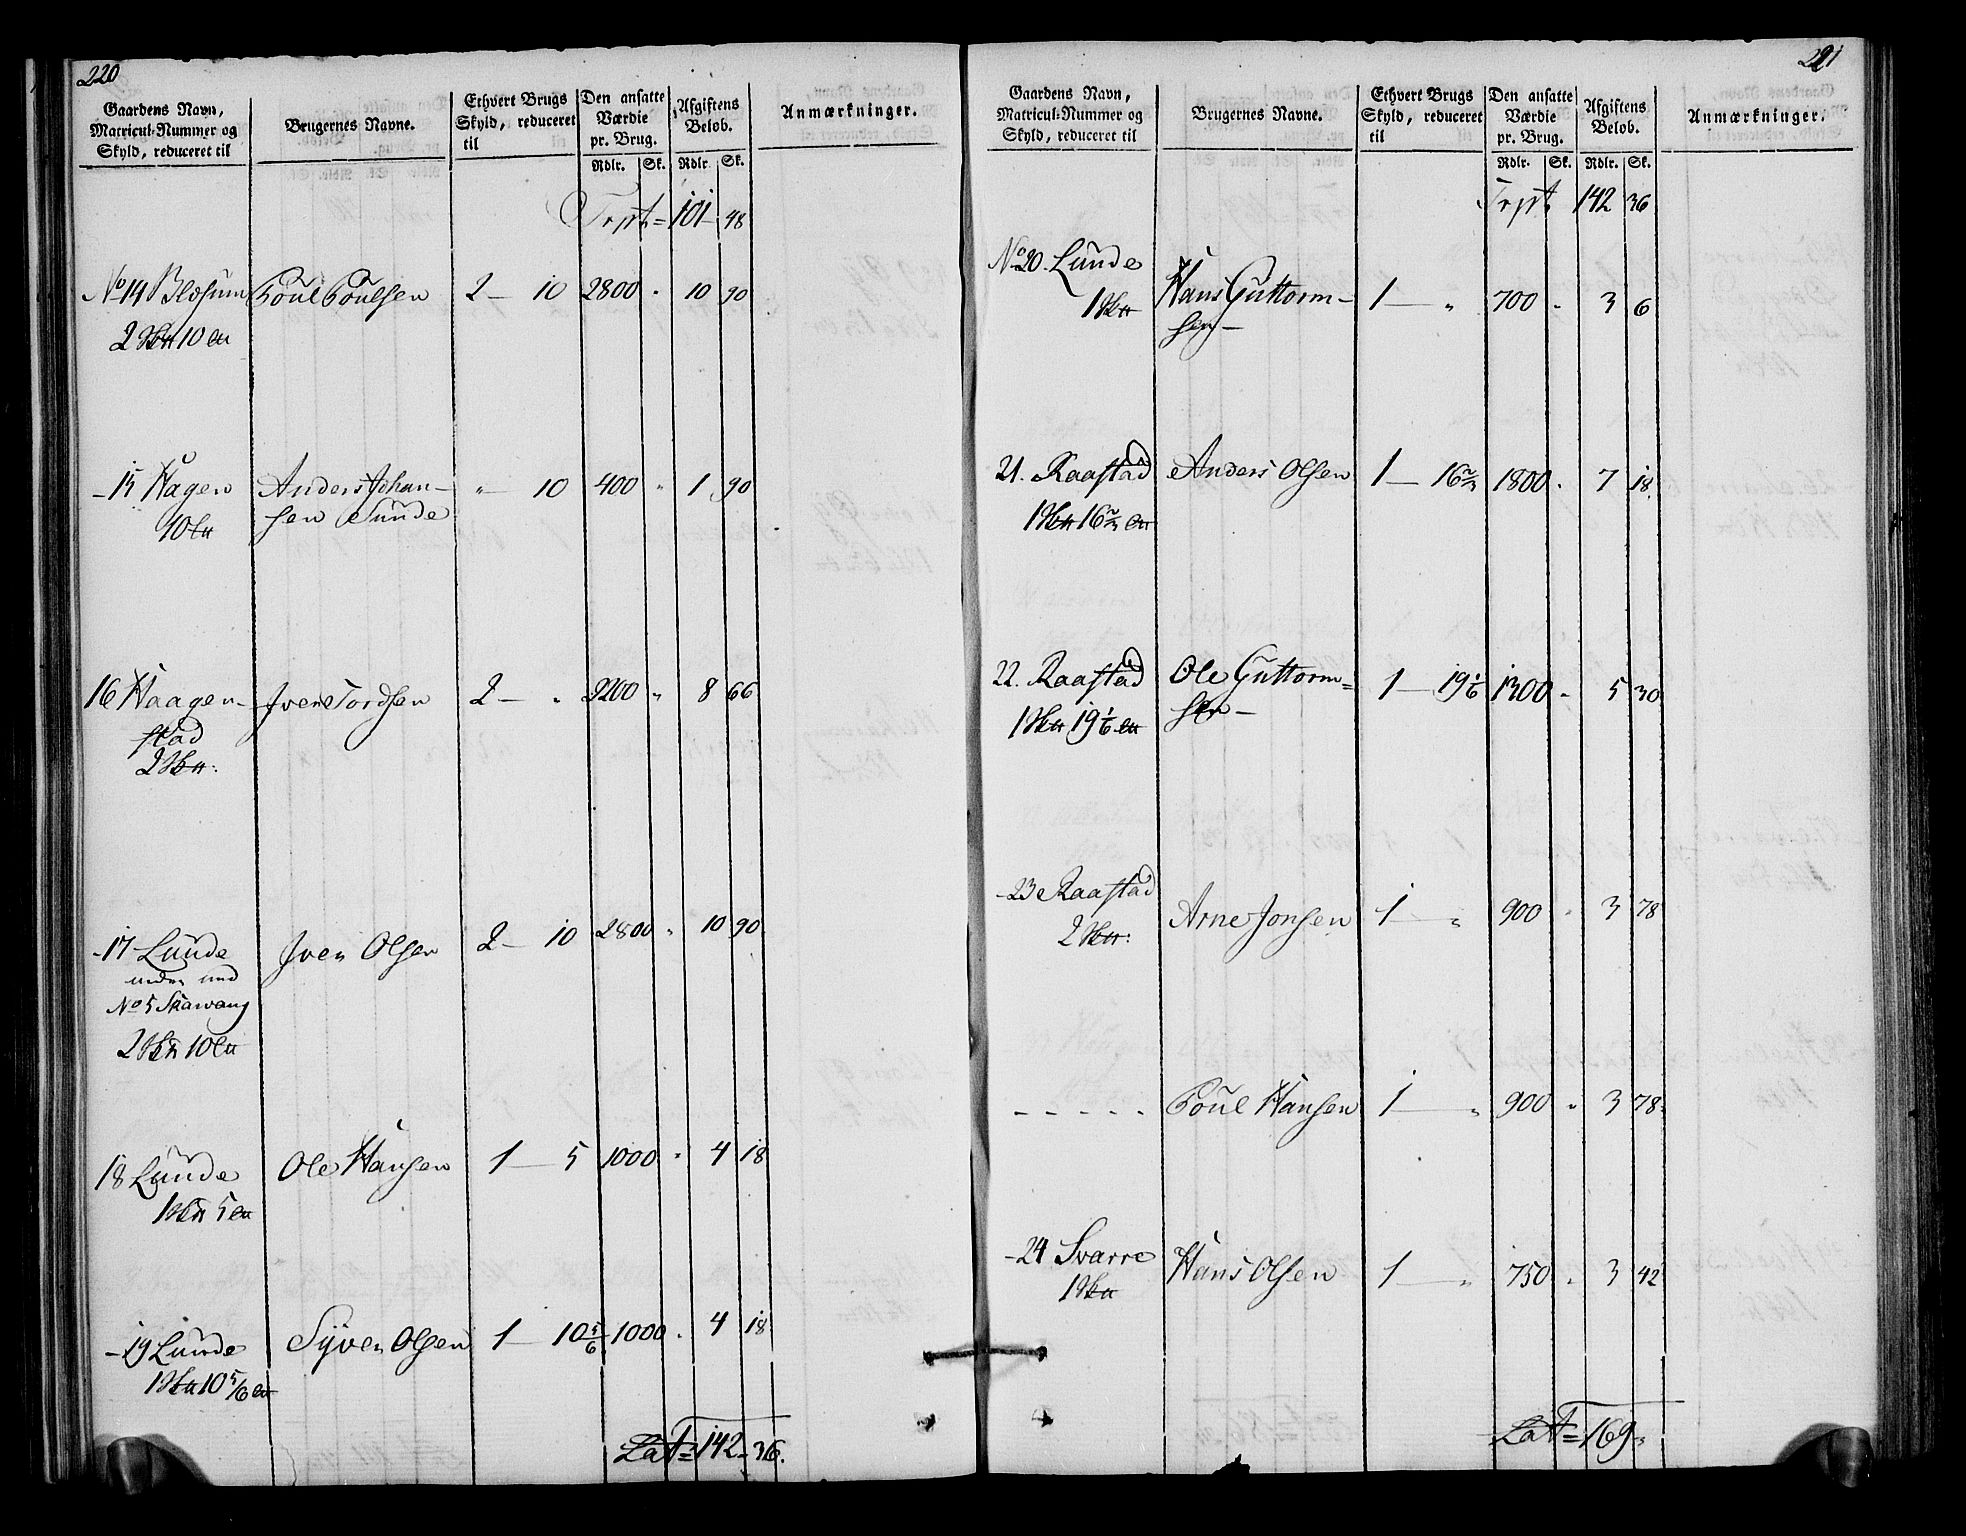 220
Gaardens Navn, Matricul-Nummer og Skyld, reduceret til
Brugernes Navne.
Ethvert Brugs Skyld, reduceret til
Den ansatte Værdie pr. Brug.
Afgiftens Beløb.
Anmærkninger.
Rdlr. Sk. Rdlr. Sk.
Trpt = 101 - 48
No 14 Blæsum Poul Poulsen 2 - 10 2800 " 10 90
2 10
- 15 Hagen Anders Johan- " - 10 400 " 1 90
10 sen Sunde
16 Haagen- Iver Tordsen 2 - " 2200 " 8 66
stad
2
- 17 Lunde Iven Olsen 2 - 10 2800 " 10 90
No 5 Skarvang
2 10
18 Lunde Ole Hansen 1 - 5 1000 " 4 18
1 5
- 19 Lunde Syver Olsen 1 - 10 5/6 1000 " 4 18
1 10 5/6
Lat = 142 - 36.
221
Gaardens Navn, Matricul-Nummer og Skyld, reduceret til
Brugernes Navne.
Ethvert Brugs Skyld, reduceret til
Den ansatte Værdie pr. Brug.
Afgiftens Beløb.
Anmærkninger.
Rdlr. Sk. Rdlr. Sk.
Trpt 142 36
No 20. Lunde Hans Guttorm- 1 - " 700 " 3 6
1 sen -
21. Raastad Anders Olsen 1 - 16 1800 " 7 18
1 16
22. Raastad Ole Guttorm= 1 - 19 1/6 1300 " 5 30
1 19 1/6 sen -
- 23 Raastad Arne Jonsen 1 - " 900 " 3 78
2
- - - - - Poul Hansen 1 - " 900 " 3 78
- 24 Svarre Hans Olsen 1 - " 750 " 3 42
1
Lat = 169 "